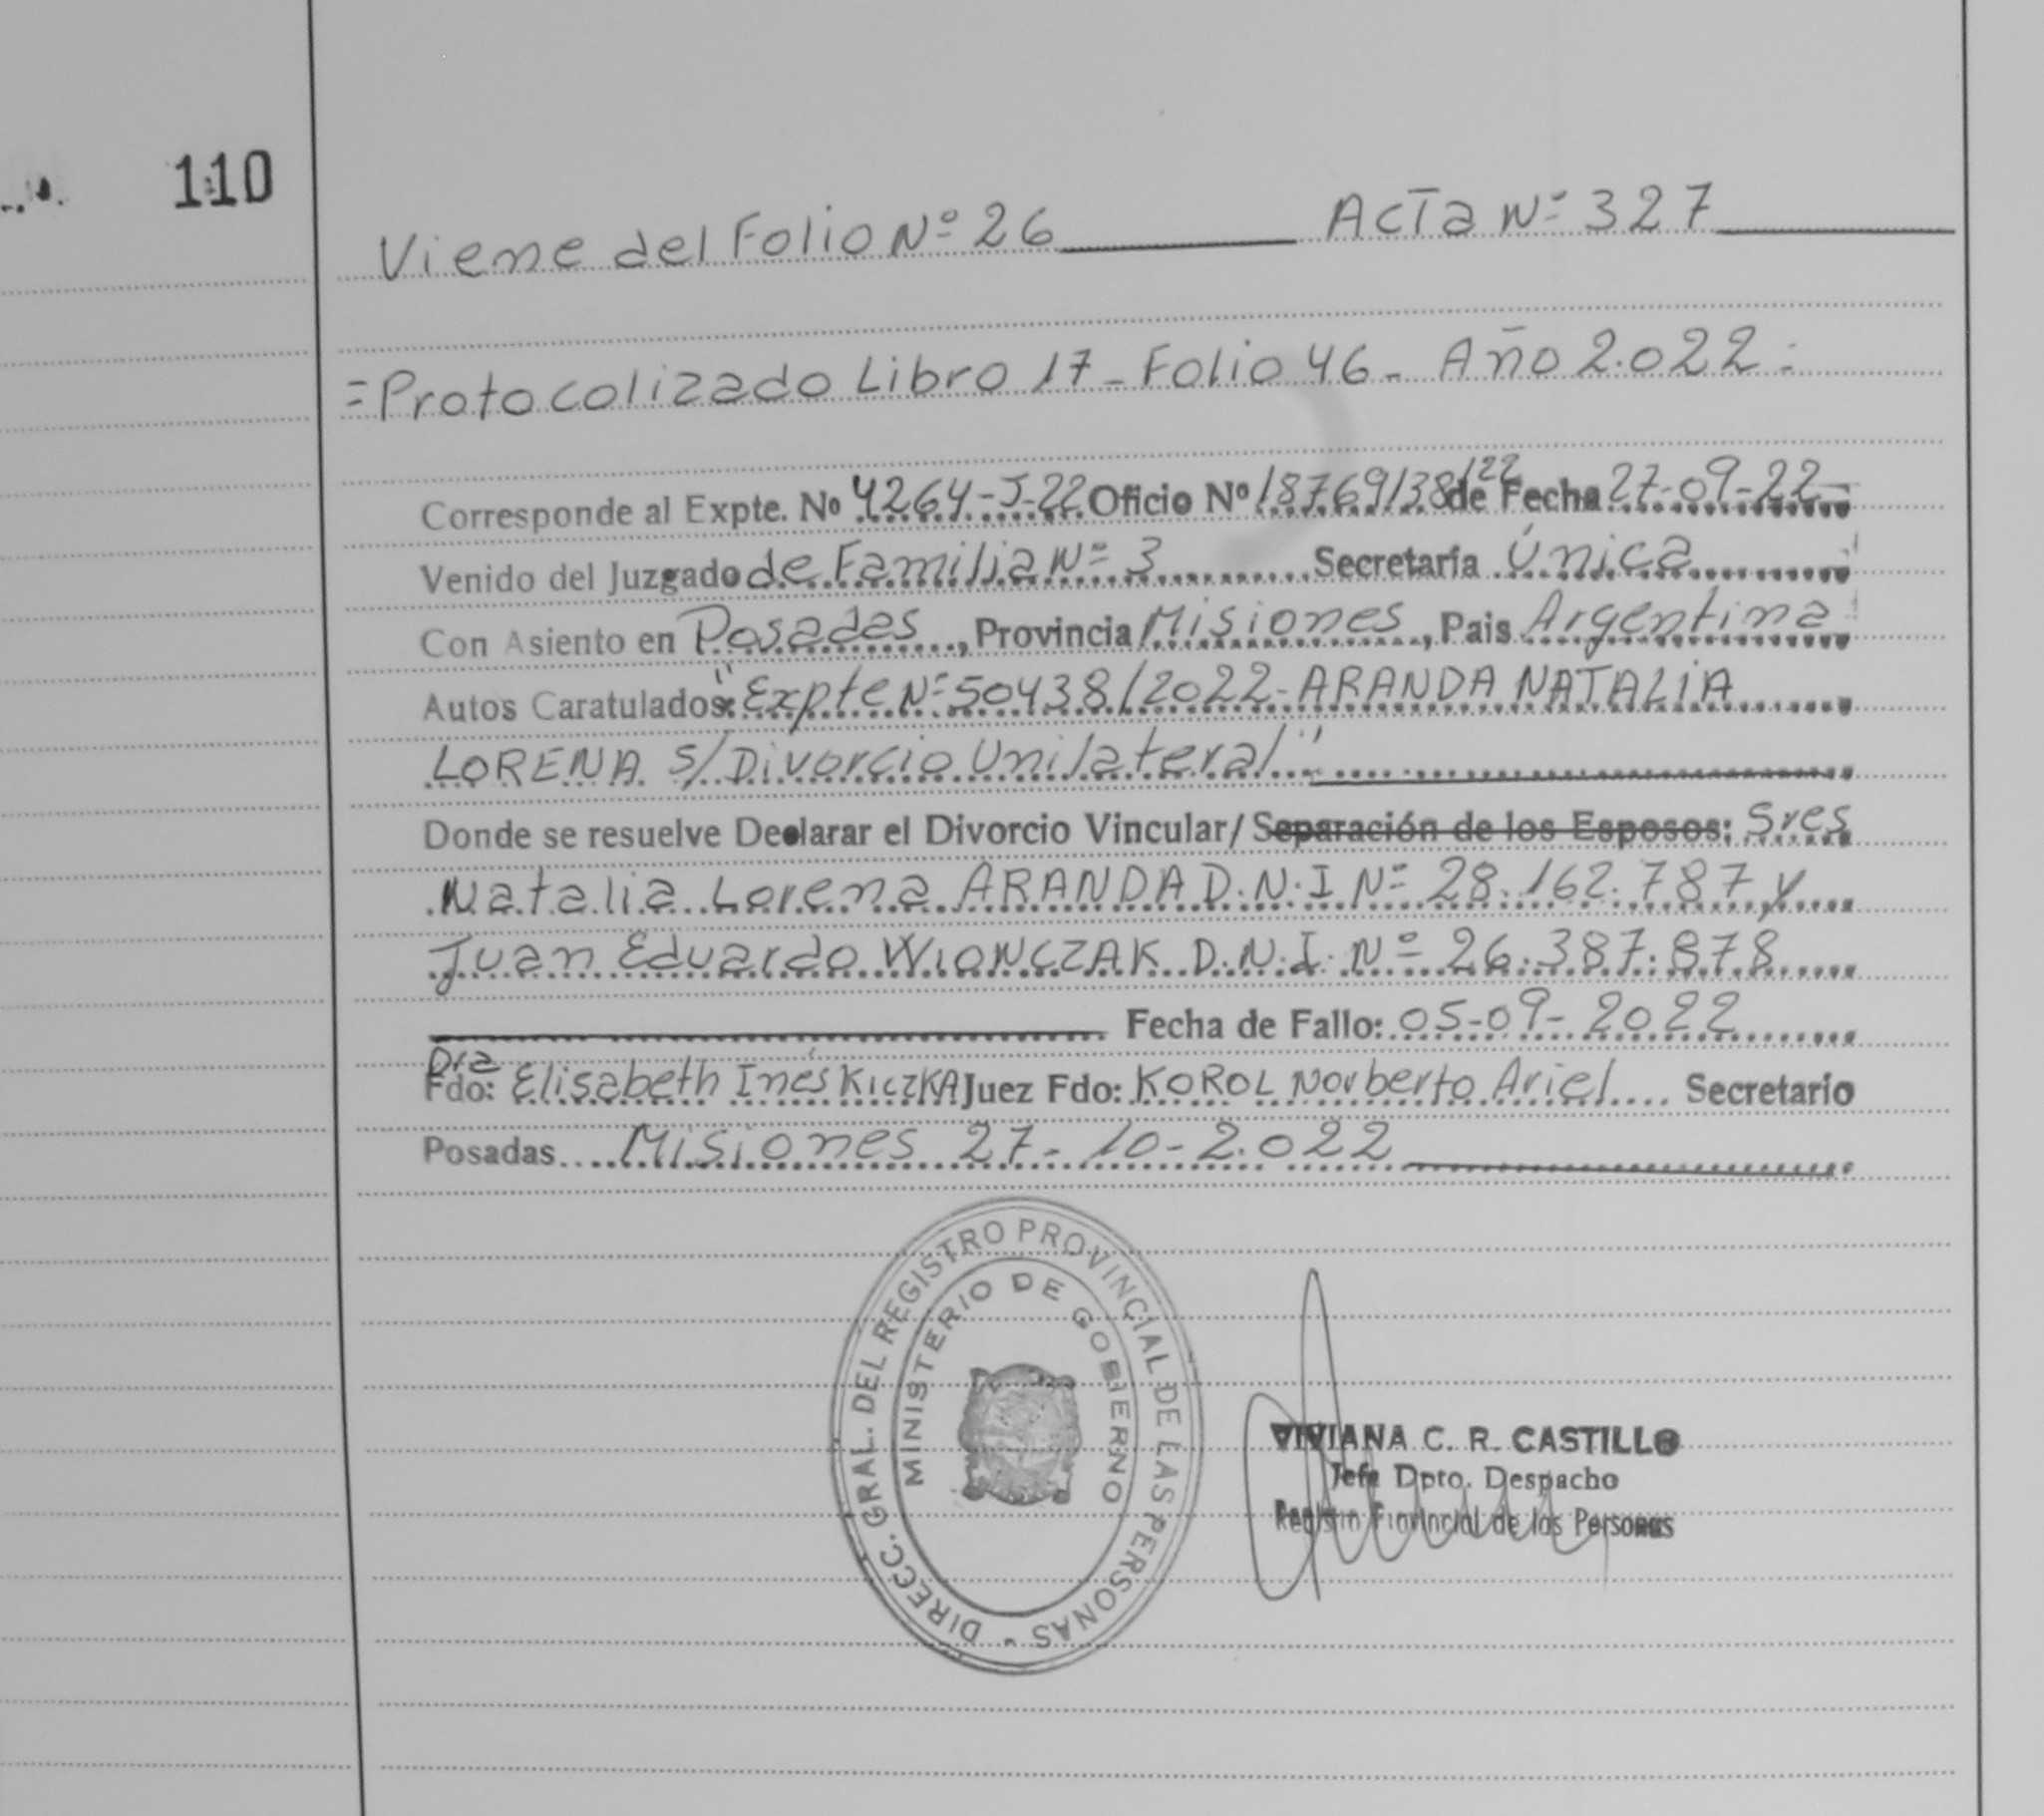 110
Viene del Folio Nº 26 Acta Nº 327
=Protocolizado Libro 17 - Folio 46 - Año 2.022=
Corresponde al Expte. Nº 4264-J-22 Oficio Nº 18769138/22 de Fecha 27-09-22
Venido del Juzgado de Familia Nº 3 Secretaría Única
Con Asiento en Posadas, Provincia Misiones, Pais Argentina
Autos Caratulados: "Expte Nº 50438/2022-ARANDA NATALIA
LORENA S/Divorcio Unilateral"
Donde se resuelve Declarar el Divorcio Vincular/Separación de los Esposos: Sres
Natalia Lorena ARANDA D.N.I Nº 28.162.787 y
Juan Eduardo WIONCZAK D.N.I. Nº 26.387.878
Fecha de Fallo: 05-09-2022
Dra
Fdo: Elisabeth Inés KICZKA Juez Fdo: KOROL Norberto Ariel.... Secretario
Posadas....Misiones 27-10-2.022
DIRECC. GRAL. DEL REGISTRO PROVINCIAL DE LAS PERSONAS -
MINISTERIO DE GOBIERNO
VIVIANA C. R. CASTILLO
Jefe Dpto. Despacho
Registro Provincial de las Personas